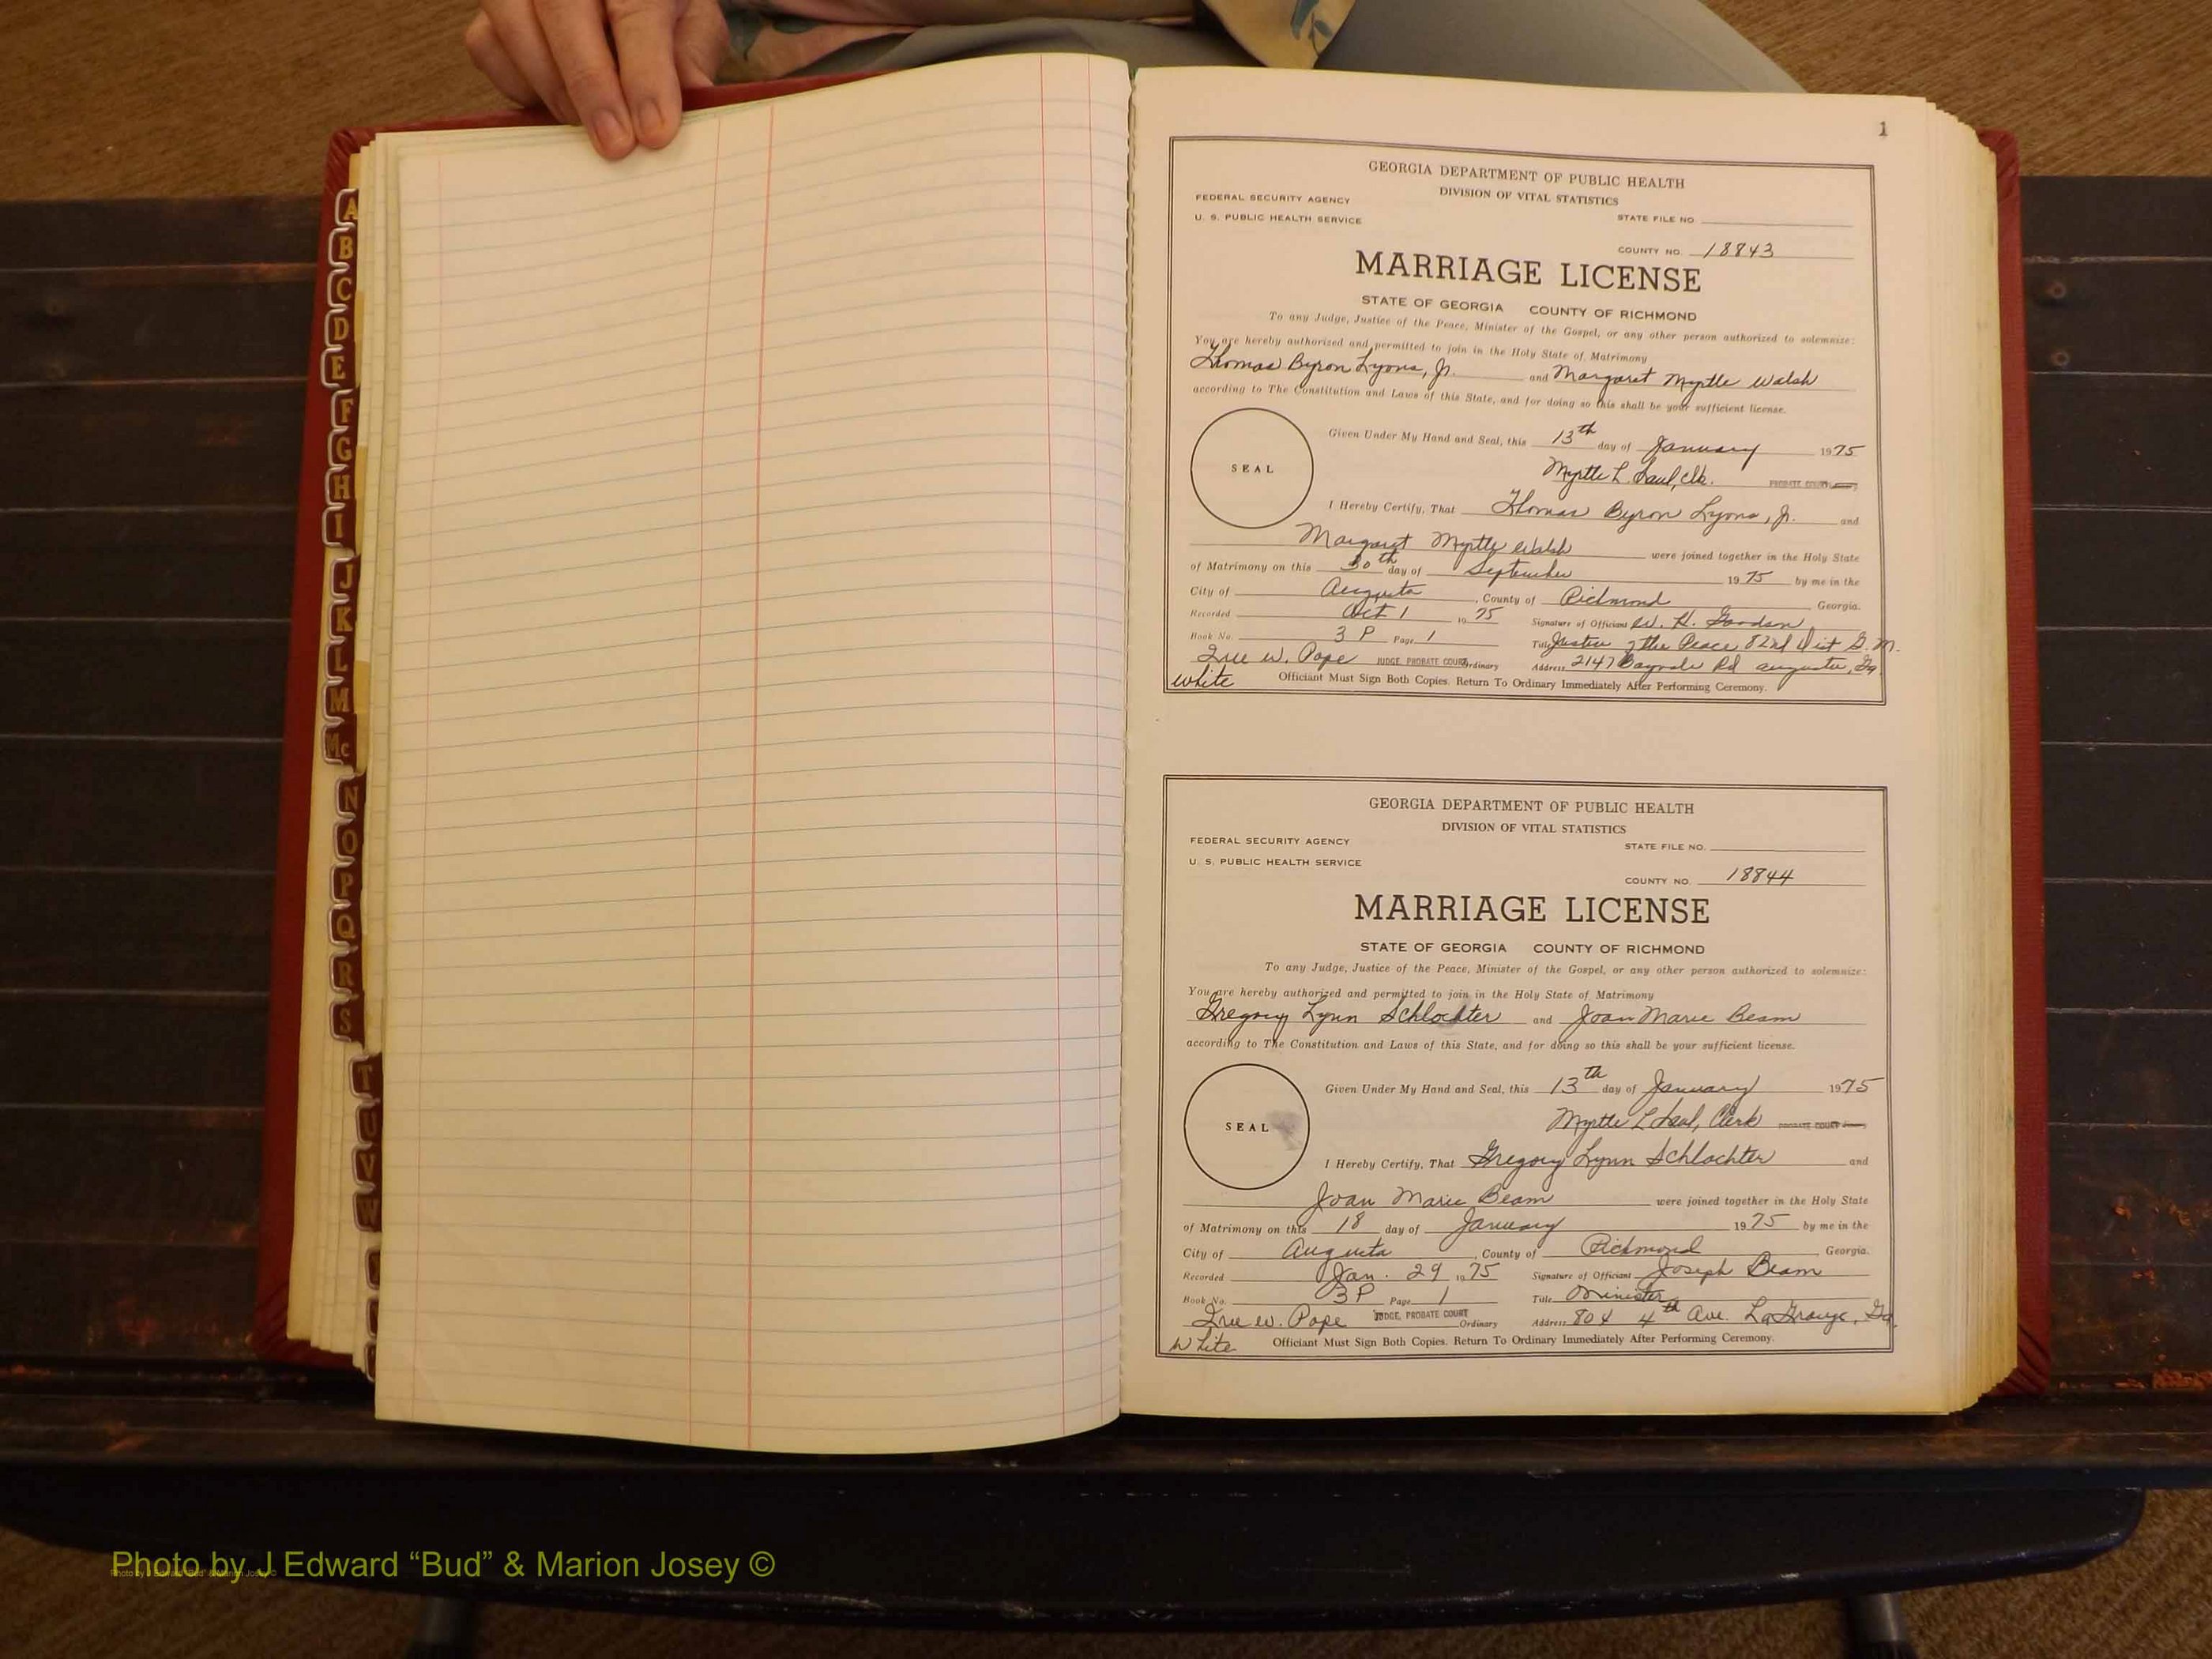 A
B
C
D
E
F
G
H
I
J
K
L
M
Mc
N
O
P
Q
R
S
T
U
V
W
1
GEORGIA DEPARTMENT OF PUBLIC HEALTH
DIVISION OF VITAL STATISTICS
FEDERAL SECURITY AGENCY
U. S. PUBLIC HEALTH SERVICE
STATE FILE NO
COUNTY NO. 18843
MARRIAGE LICENSE
STATE OF GEORGIA COUNTY OF RICHMOND
To any Judge, Justice of the Peace, Minister of the Gospel, or any other person authorized to solemnize:
You are hereby authorized and permitted to join in the Holy State of Matrimony
Thomas Byron Lyons, Jr. and Margaret Myrtle Walsh
according to The Constitution and Laws of this State, and for doing so this shall be your sufficient license.
SEAL
Given Under My Hand and Seal, this 13th day of January 1975
Myrtle L. Saul, Clk. PROBATE COURT
I Hereby Certify, That Thomas Byron Lyons, Jr. and
Margaret Myrtle Walsh were joined together in the Holy State
of Matrimony on this 30th day of September 1975 by me in the
City of Augusta, County of Richmond Georgia.
Recorded Oct 1 1975 Signature of Officiant W. H. Goodson
Book No. 3 P Page 1 Title Justice of the Peace 82nd Dist G. M.
Irue W. Pope JUDGE, PROBATE COURT Ordinary Address 2147 Bayvale Rd Augusta, Ga.
White Officiant Must Sign Both Copies. Return To Ordinary Immediately After Performing Ceremony.
GEORGIA DEPARTMENT OF PUBLIC HEALTH
DIVISION OF VITAL STATISTICS
FEDERAL SECURITY AGENCY
U. S. PUBLIC HEALTH SERVICE
STATE FILE NO.
COUNTY NO. 18844
MARRIAGE LICENSE
STATE OF GEORGIA COUNTY OF RICHMOND
To any Judge, Justice of the Peace, Minister of the Gospel, or any other person authorized to solemnize:
You are hereby authorized and permitted to join in the Holy State of Matrimony
Gregory Lynn Schlachter and Joan Marie Beam
according to The Constitution and Laws of this State, and for doing so this shall be your sufficient license.
SEAL
Given Under My Hand and Seal, this 13th day of January 1975
Myrtle L Saul, Clerk PROBATE COURT
I Hereby Certify, That Gregory Lynn Schlachter and
Joan Marie Beam were joined together in the Holy State
of Matrimony on this 18 day of January 1975 by me in the
City of Augusta, County of Richmond Georgia.
Recorded Jan. 29 1975 Signature of Officiant Joseph Beam
Book No. 3P Page 1 Title Minister
Irue W. Pope JUDGE, PROBATE COURT Ordinary Address 804 4th Ave. LaGrange, Ga.
White Officiant Must Sign Both Copies. Return To Ordinary Immediately After Performing Ceremony.
Photo by J Edward “Bud” & Marion Josey ©
Photo by J Edward “Bud” & Marion Josey ©